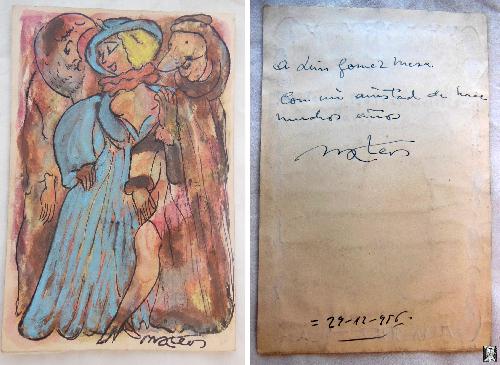 mateos
A Luis Gomez Mesa.
Con mi amistad de hace
muchos años
mateos
= 29-12-956.